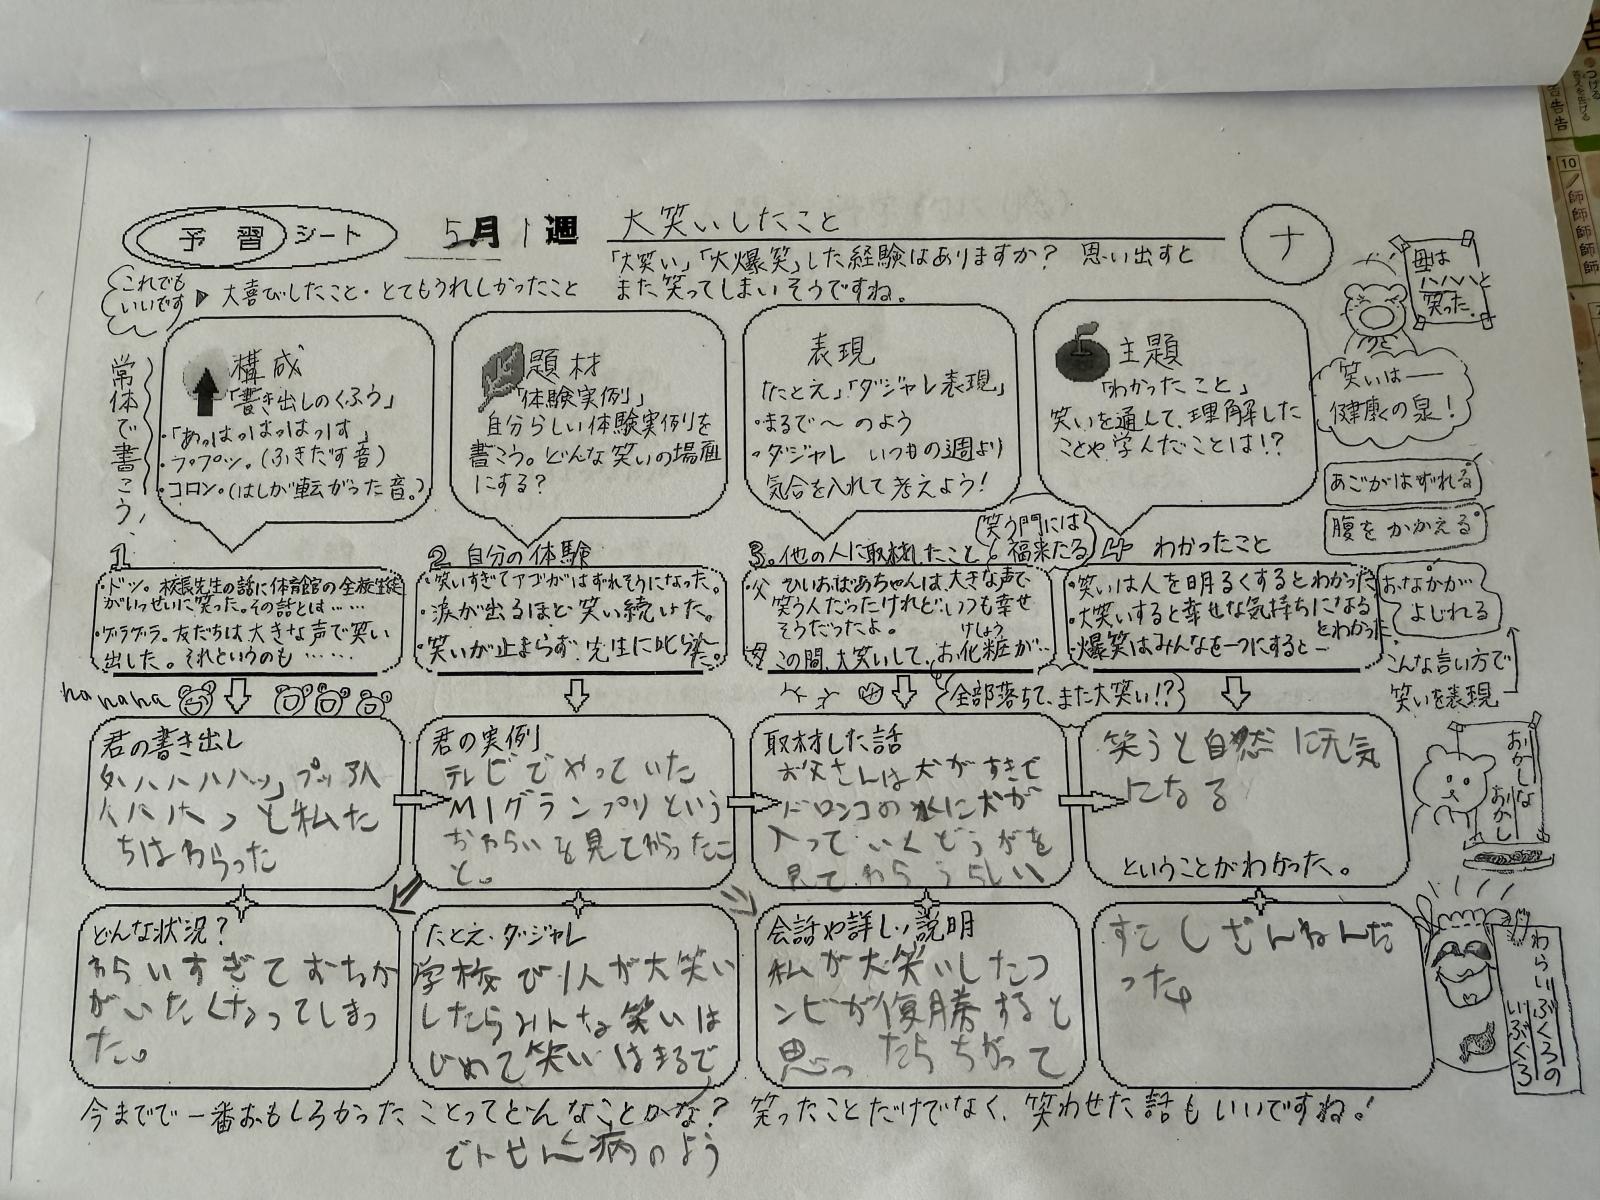 予習シート
5月1週
大笑いしたこと
ナ
「大笑い」「大爆笑」した経験はありますか? 思い出すと
また笑ってしまいそうですね。
これでも
いいです
▶ 大喜びしたこと・とてもうれしかったこと
常体で書こう
構成
「書き出しのくふう」
・「あっはっはっはっはっす」
・プププッ。(ふきだす音)
・コロン。(はしが転がった音。)
題材
「体験実例」
自分らしい体験実例を
書こう。どんな笑いの場面
にする?
表現
たとえ」「ダジャレ表現」
・まるで〜のよう
・ダジャレ いつもの週より
気合を入れて考えよう!
主題
「わかったこと」
笑いを通して、理解した
ことや学んだことは!?
母は
ハハハハと
笑った。
笑いは―
健康の泉!
あごがはずれる
腹をかかえる
おなかが
よじれる
こんな言い方で
笑いを表現
1
・ドッ。校長先生の話に体育館の全校生徒
がいっせいに笑った。その話とは……
・ゲラゲラ。友だちは大きな声で笑い
出した。それというのも……
2 自分の体験
・笑いすぎてアゴがはずれそうになった。
・涙が出るほど笑い続けた。
・笑いが止まらず先生に叱られた。
3. 他の人に取材したこと
笑う門には
福来たる
父 ひいおばあちゃんは、大きな声で
笑う人だったけれど、いつも幸せ
そうだったよ。
母 この間、大笑いして、お化粧が…
けしょう
全部落ちて、また大笑い!?
4 わかったこと
・笑いは人を明るくするとわかった。
・大笑いすると幸せな気持ちになる
とわかった
・爆笑はみんなを一つにすると―
hahaha
君の書き出し
と私た
ちはわらった
君の実例
テレビでやっていた
M1グランプリという
おわらいを見てわらったこ
と。
取材した話
お父さんは犬がすきで
ドロンコの水に犬が
入っていくどうがを
見てわらうらしい
笑うと自然に元気
になる
ということがわかった。
どんな状況?
わらいすぎておなか
がいたくなってしまっ
た。
たとえ・ダジャレ
学校で1人が大笑い
したらみんな笑いは
じめて笑いはまるで
でんせん病のよう
会話や詳しい説明
私が大笑いしたコ
ンビが優勝すると
思ったらちがって
すこしざんねんだ
った。
おかしな
おかし
わらいぶくろの
いぶくろ
今までで一番おもしろかったことってどんなことかな? 笑ったことだけでなく、笑わせた話もいいですね!